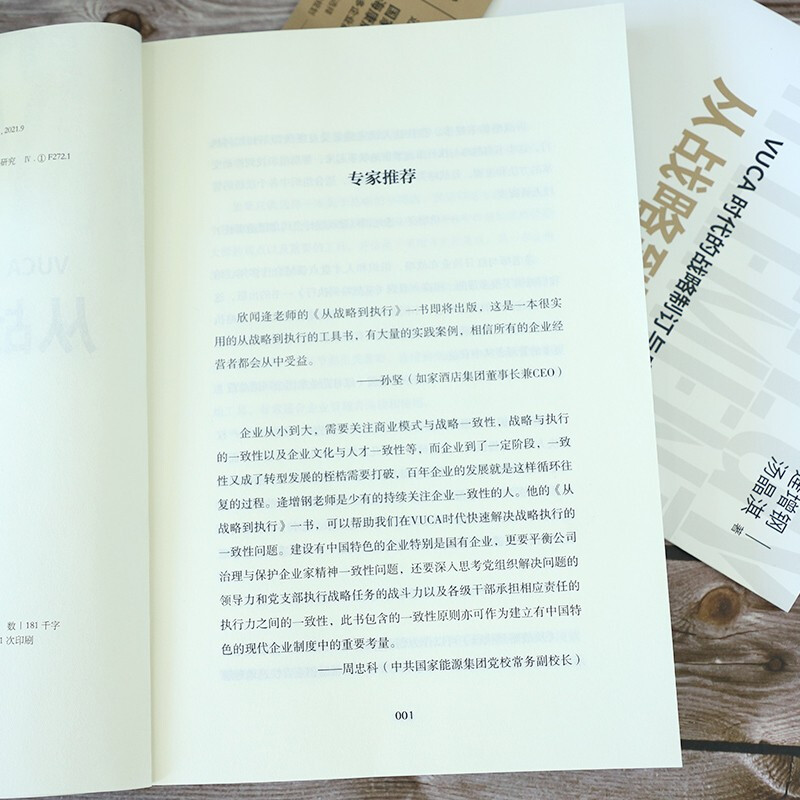 , 2021.9
研究 Ⅳ. ① F272.1
数 | 181 千字
1 次印刷
专家推荐
欣闻逄老师的《从战略到执行》一书即将出版，这是一本很实
用的从战略到执行的工具书，有大量的实践案例，相信所有的企业经
营者都会从中受益。
——孙坚（如家酒店集团董事长兼CEO）
企业从小到大，需要关注商业模式与战略一致性，战略与执行
的一致性以及企业文化与人才一致性等，而企业到了一定阶段，一致
性又成了转型发展的桎梏需要打破，百年企业的发展就是这样循环往
复的过程。逄增钢老师是少有的持续关注企业一致性的人。他的《从
战略到执行》一书，可以帮助我们在VUCA时代快速解决战略执行的
一致性问题。建设有中国特色的企业特别是国有企业，更要平衡公司
治理与保护企业家精神一致性问题，还要深入思考党组织解决问题的
领导力和党支部执行战略任务的战斗力以及各级干部承担相应责任的
执行力之间的一致性，此书包含的一致性原则亦可作为建立有中国特
色的现代企业制度中的重要考量。
——周忠科（中共国家能源集团党校常务副校长）
001
从战略到
VUCA 时代的战略制订与
增钢
汤晶淇 著